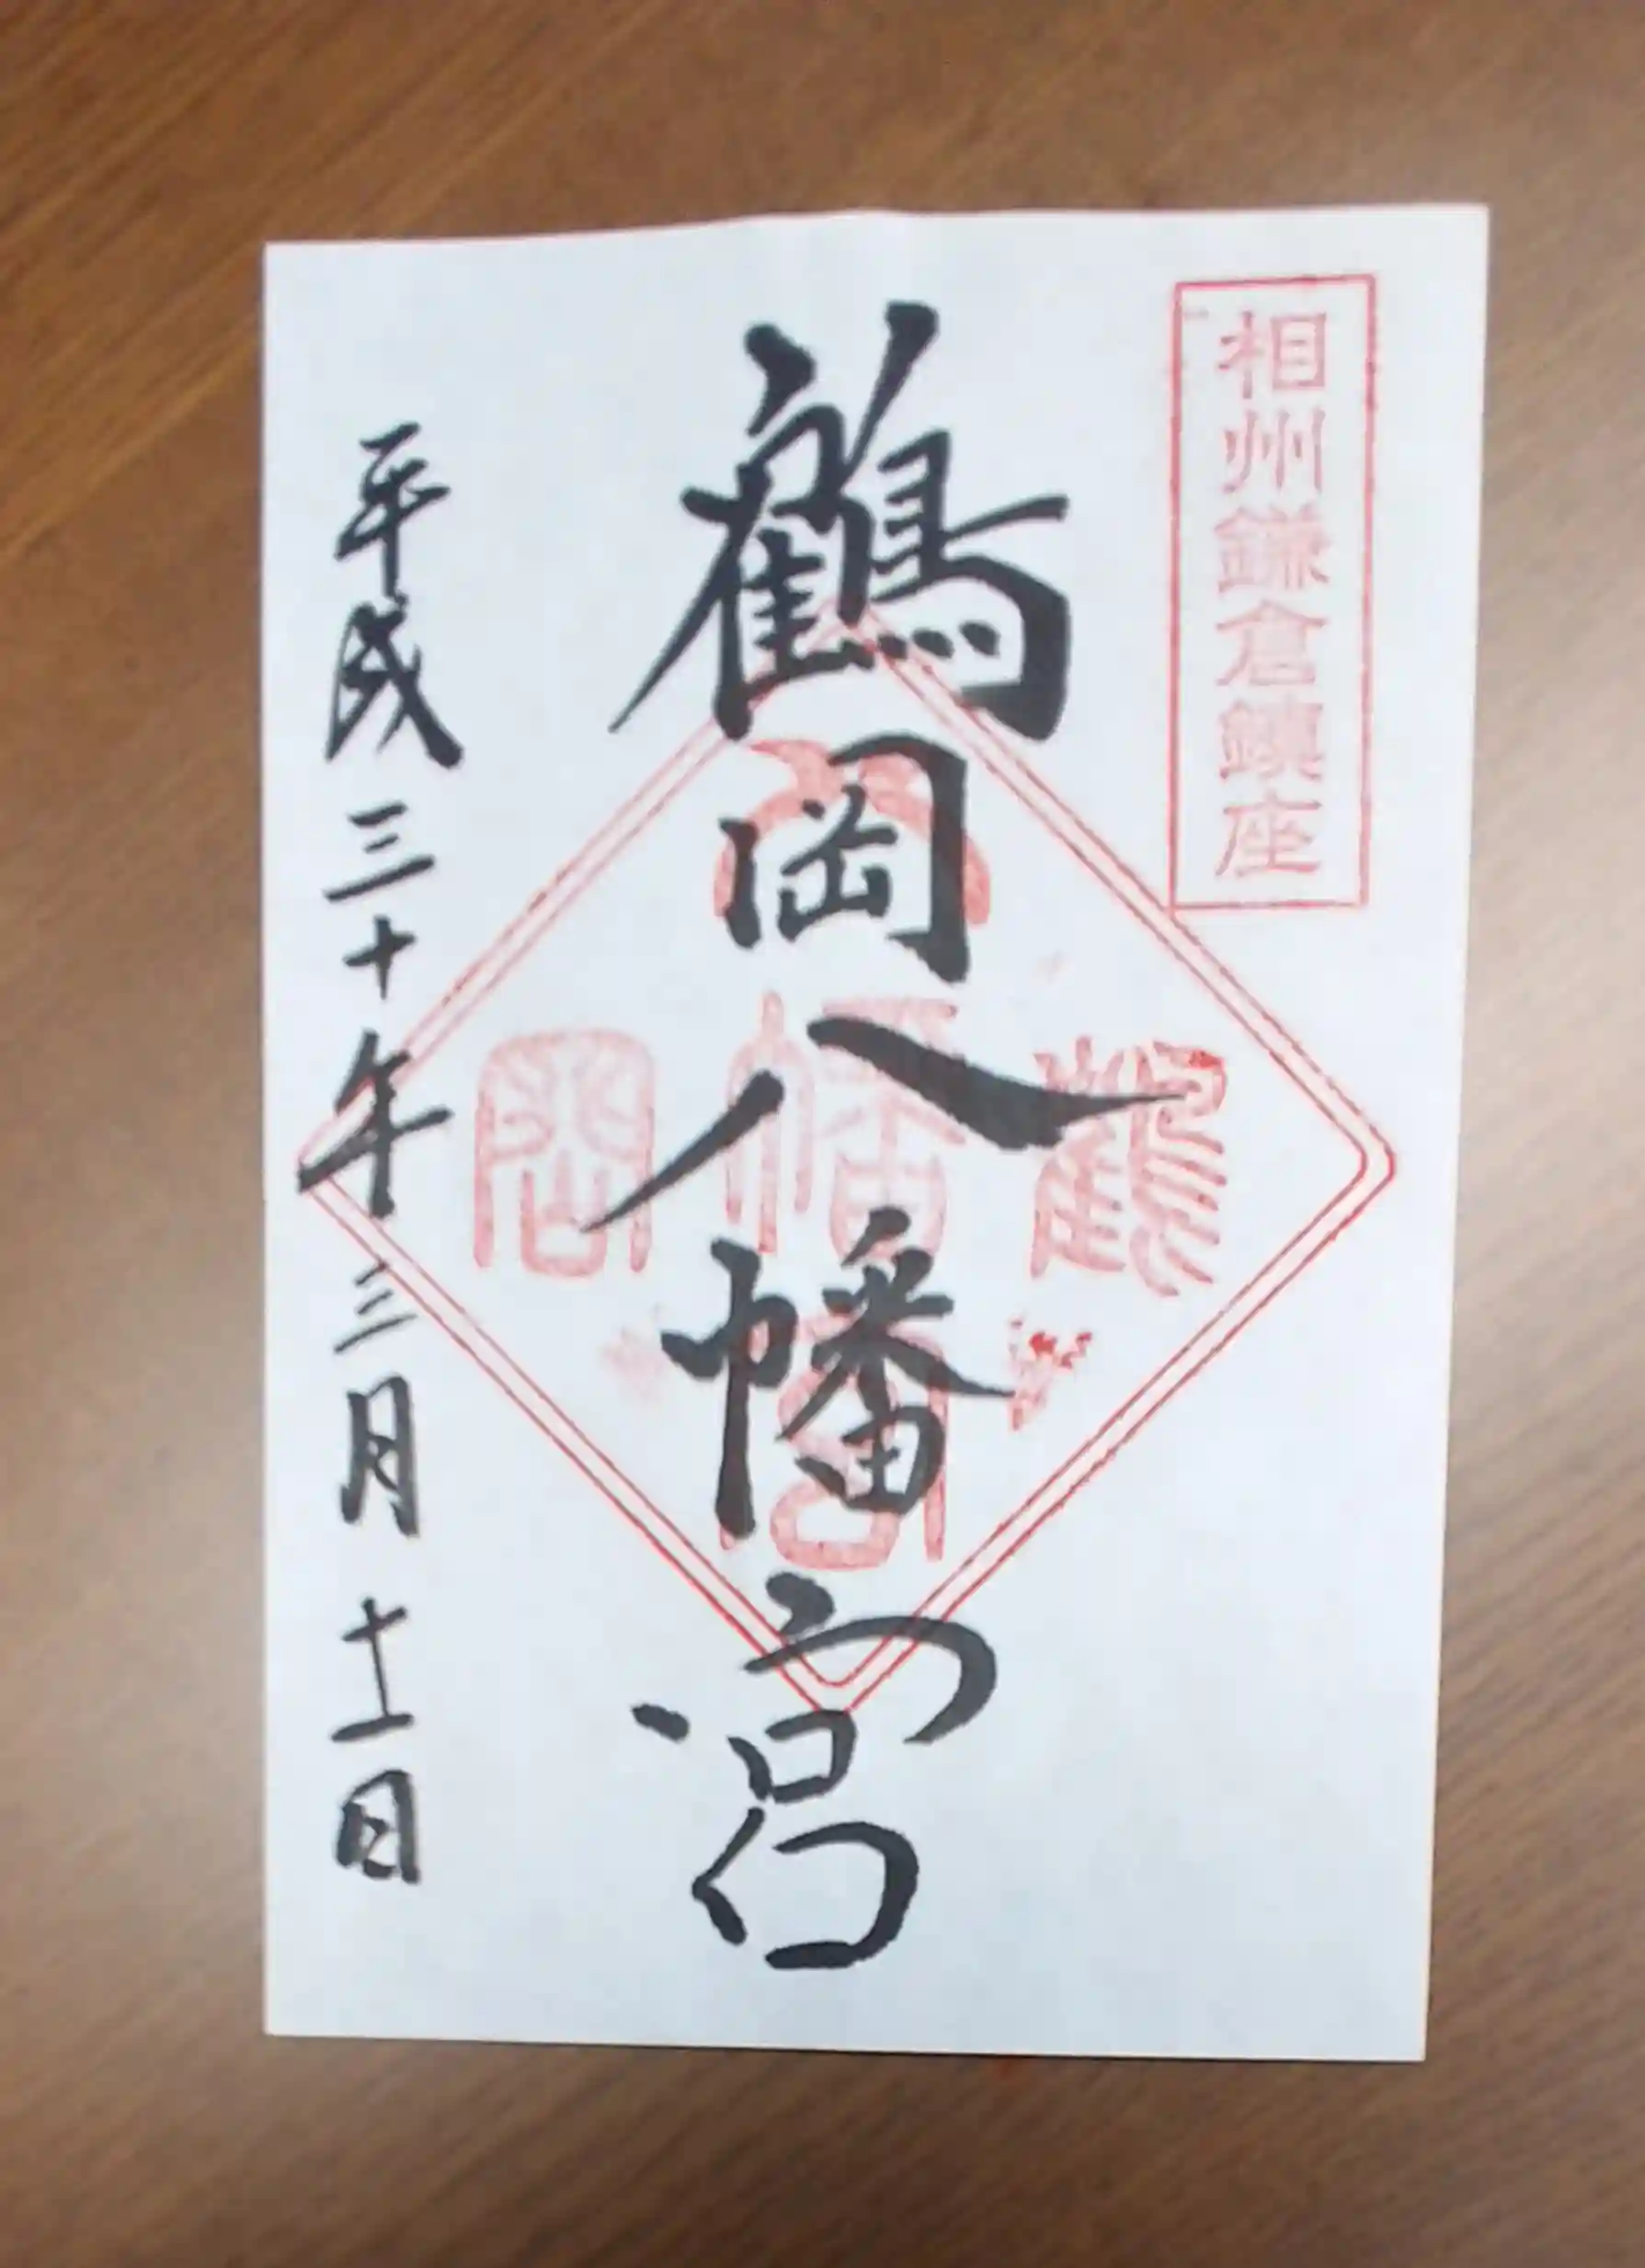 相州鎌倉鎮座
鶴岡八幡宮
平成三十年三月十一日